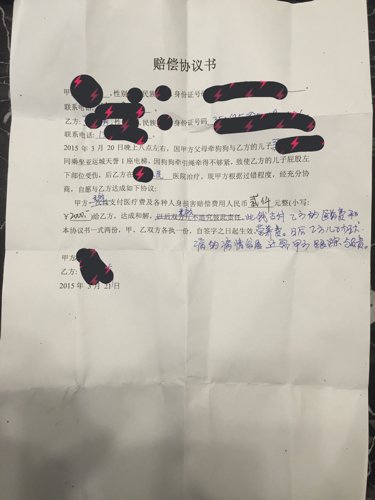 赔偿协议书
甲 ,性别 民族 身份证号码
联系电
乙方: 民族 身份证号码
联系电话:
2015年3月20日晚上八点左右,因甲方父母牵狗狗与乙方的儿子
同乘坐亚运城天誉1座电梯,因狗狗牵引绳牵得不够紧,致使乙方的儿子屁股左
下部位受伤,后乙方在 医院治疗,既甲方根据过错程度,经充分协
商,自愿与乙方达成如下协议:
甲方 支付医疗费及各种人身损害赔偿费用人民币 贰仟 元整(小写:
¥2000)给乙方,达成和解, 此钱包付乙方的医药费和
本协议书一式两份,甲、乙双方各执一份,自签字之日起生效。 营养费。日后乙方儿子
病的病情会 还要甲方 负责。
甲方
乙方:
2015年3月21日